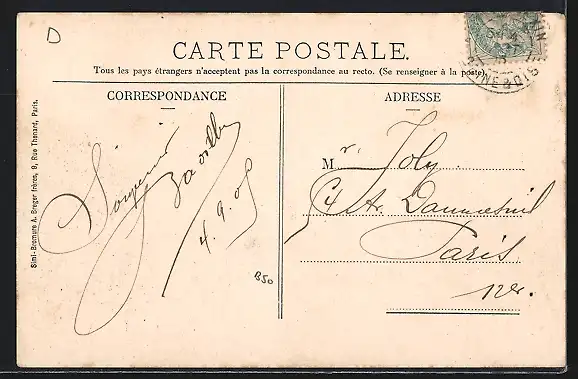 D
CARTE POSTALE.
Tous les pays étrangers n'acceptent pas la correspondance au recto. (Se renseigner à la poste).
CORRESPONDANCE
Souvenir
4.9.05
B50
Simi-Bromure A. Breger frères, 9, Rue Thenard, Paris.
ADRESSE
Mr. Joly.
Paris
12e.